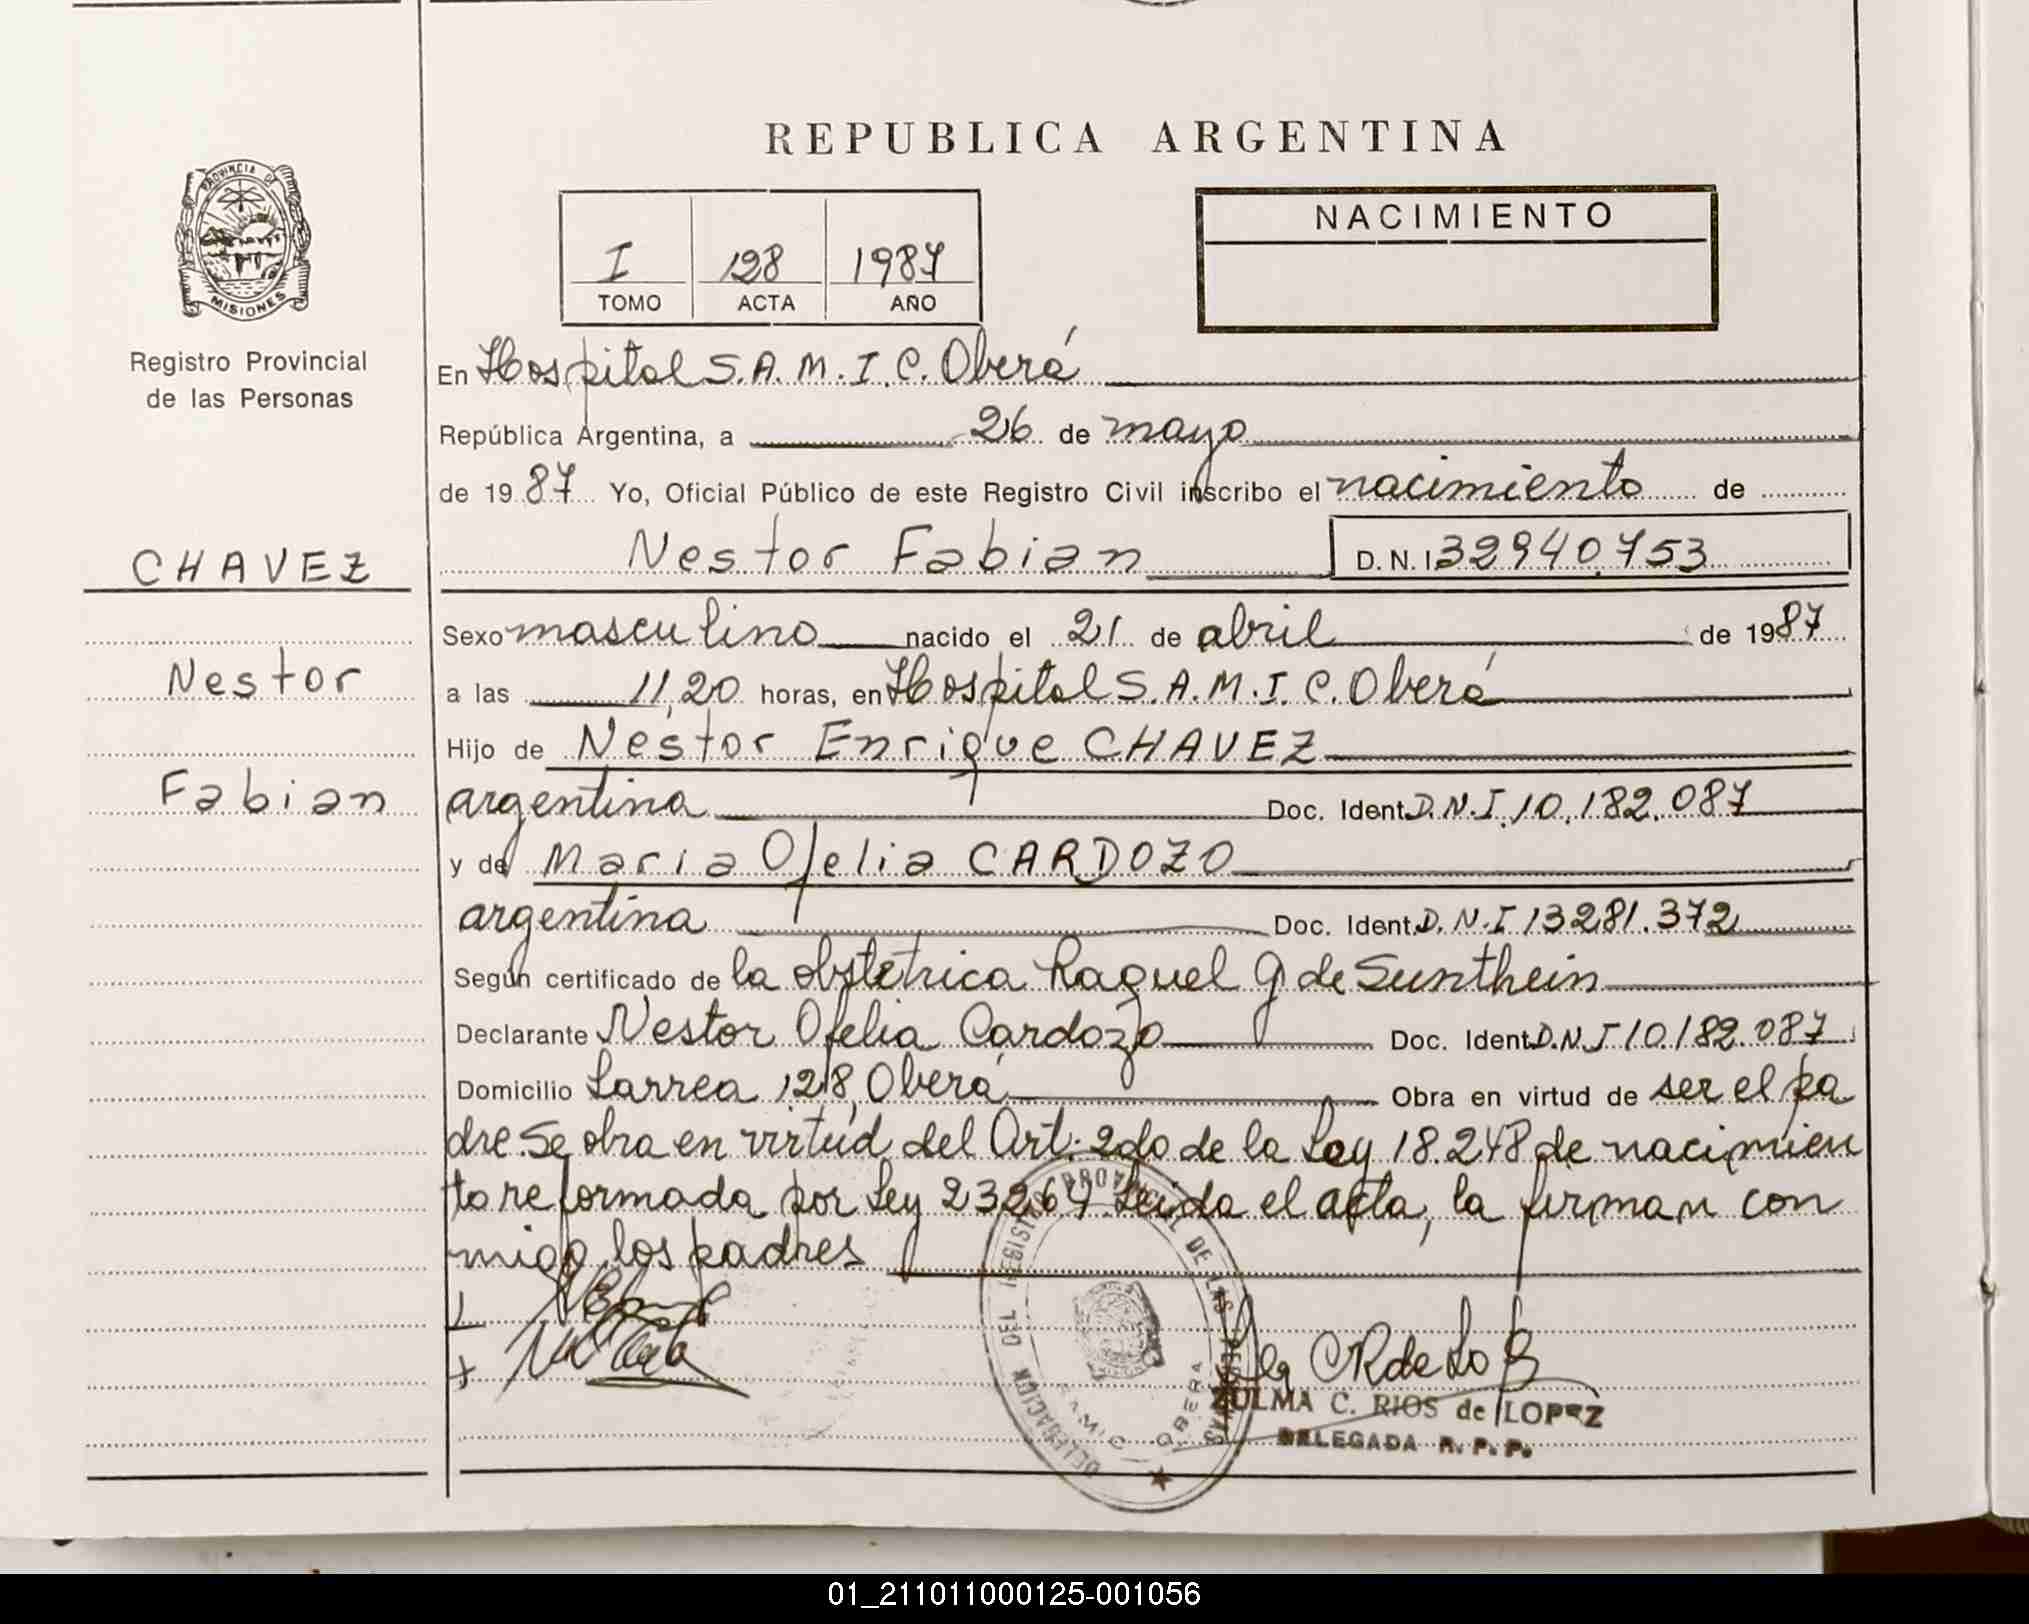 REPUBLICA ARGENTINA
PROVINCIA DE
MISIONES
Registro Provincial
de las Personas
I 128 1987
TOMO ACTA AÑO
NACIMIENTO
En Hospital S.A.M.I.C. Oberá
República Argentina, a 26 de mayo
de 1987 Yo, Oficial Público de este Registro Civil inscribo el nacimiento de
CHAVEZ
Nestor Fabian D.N.I 32940.753
Sexo masculino nacido el 21 de abril de 1987
Nestor
a las 11,20 horas, en Hospital S.A.M.I.C. Oberá
Hijo de Nestor Enrique CHAVEZ
Fabian
argentina Doc. Ident. D.N.I. 10.182.087
y de Maria Ofelia CARDOZO
argentina Doc. Ident. D.N.I 13281.372
Según certificado de la obstetrica Raquel G de Sunthein
Declarante Nestor Ofelia Cardozo Doc. Ident. D.N.I 10.182.087
Domicilio Larrea 1218, Oberá Obra en virtud de ser el pa
dre. Se obra en virtud del Art. 2do de la Ley 18.248 de nacimien
to reformada por Ley 23264 Leida el acta, la firman con
migo los padres
DELEGACION DEL REGISTRO PROVINCIAL DE LAS PERSONAS
S.A.M.I.C. OBERA
ZULMA C. RIOS de LOPEZ
DELEGADA R. P. P.
01_211011000125-001056